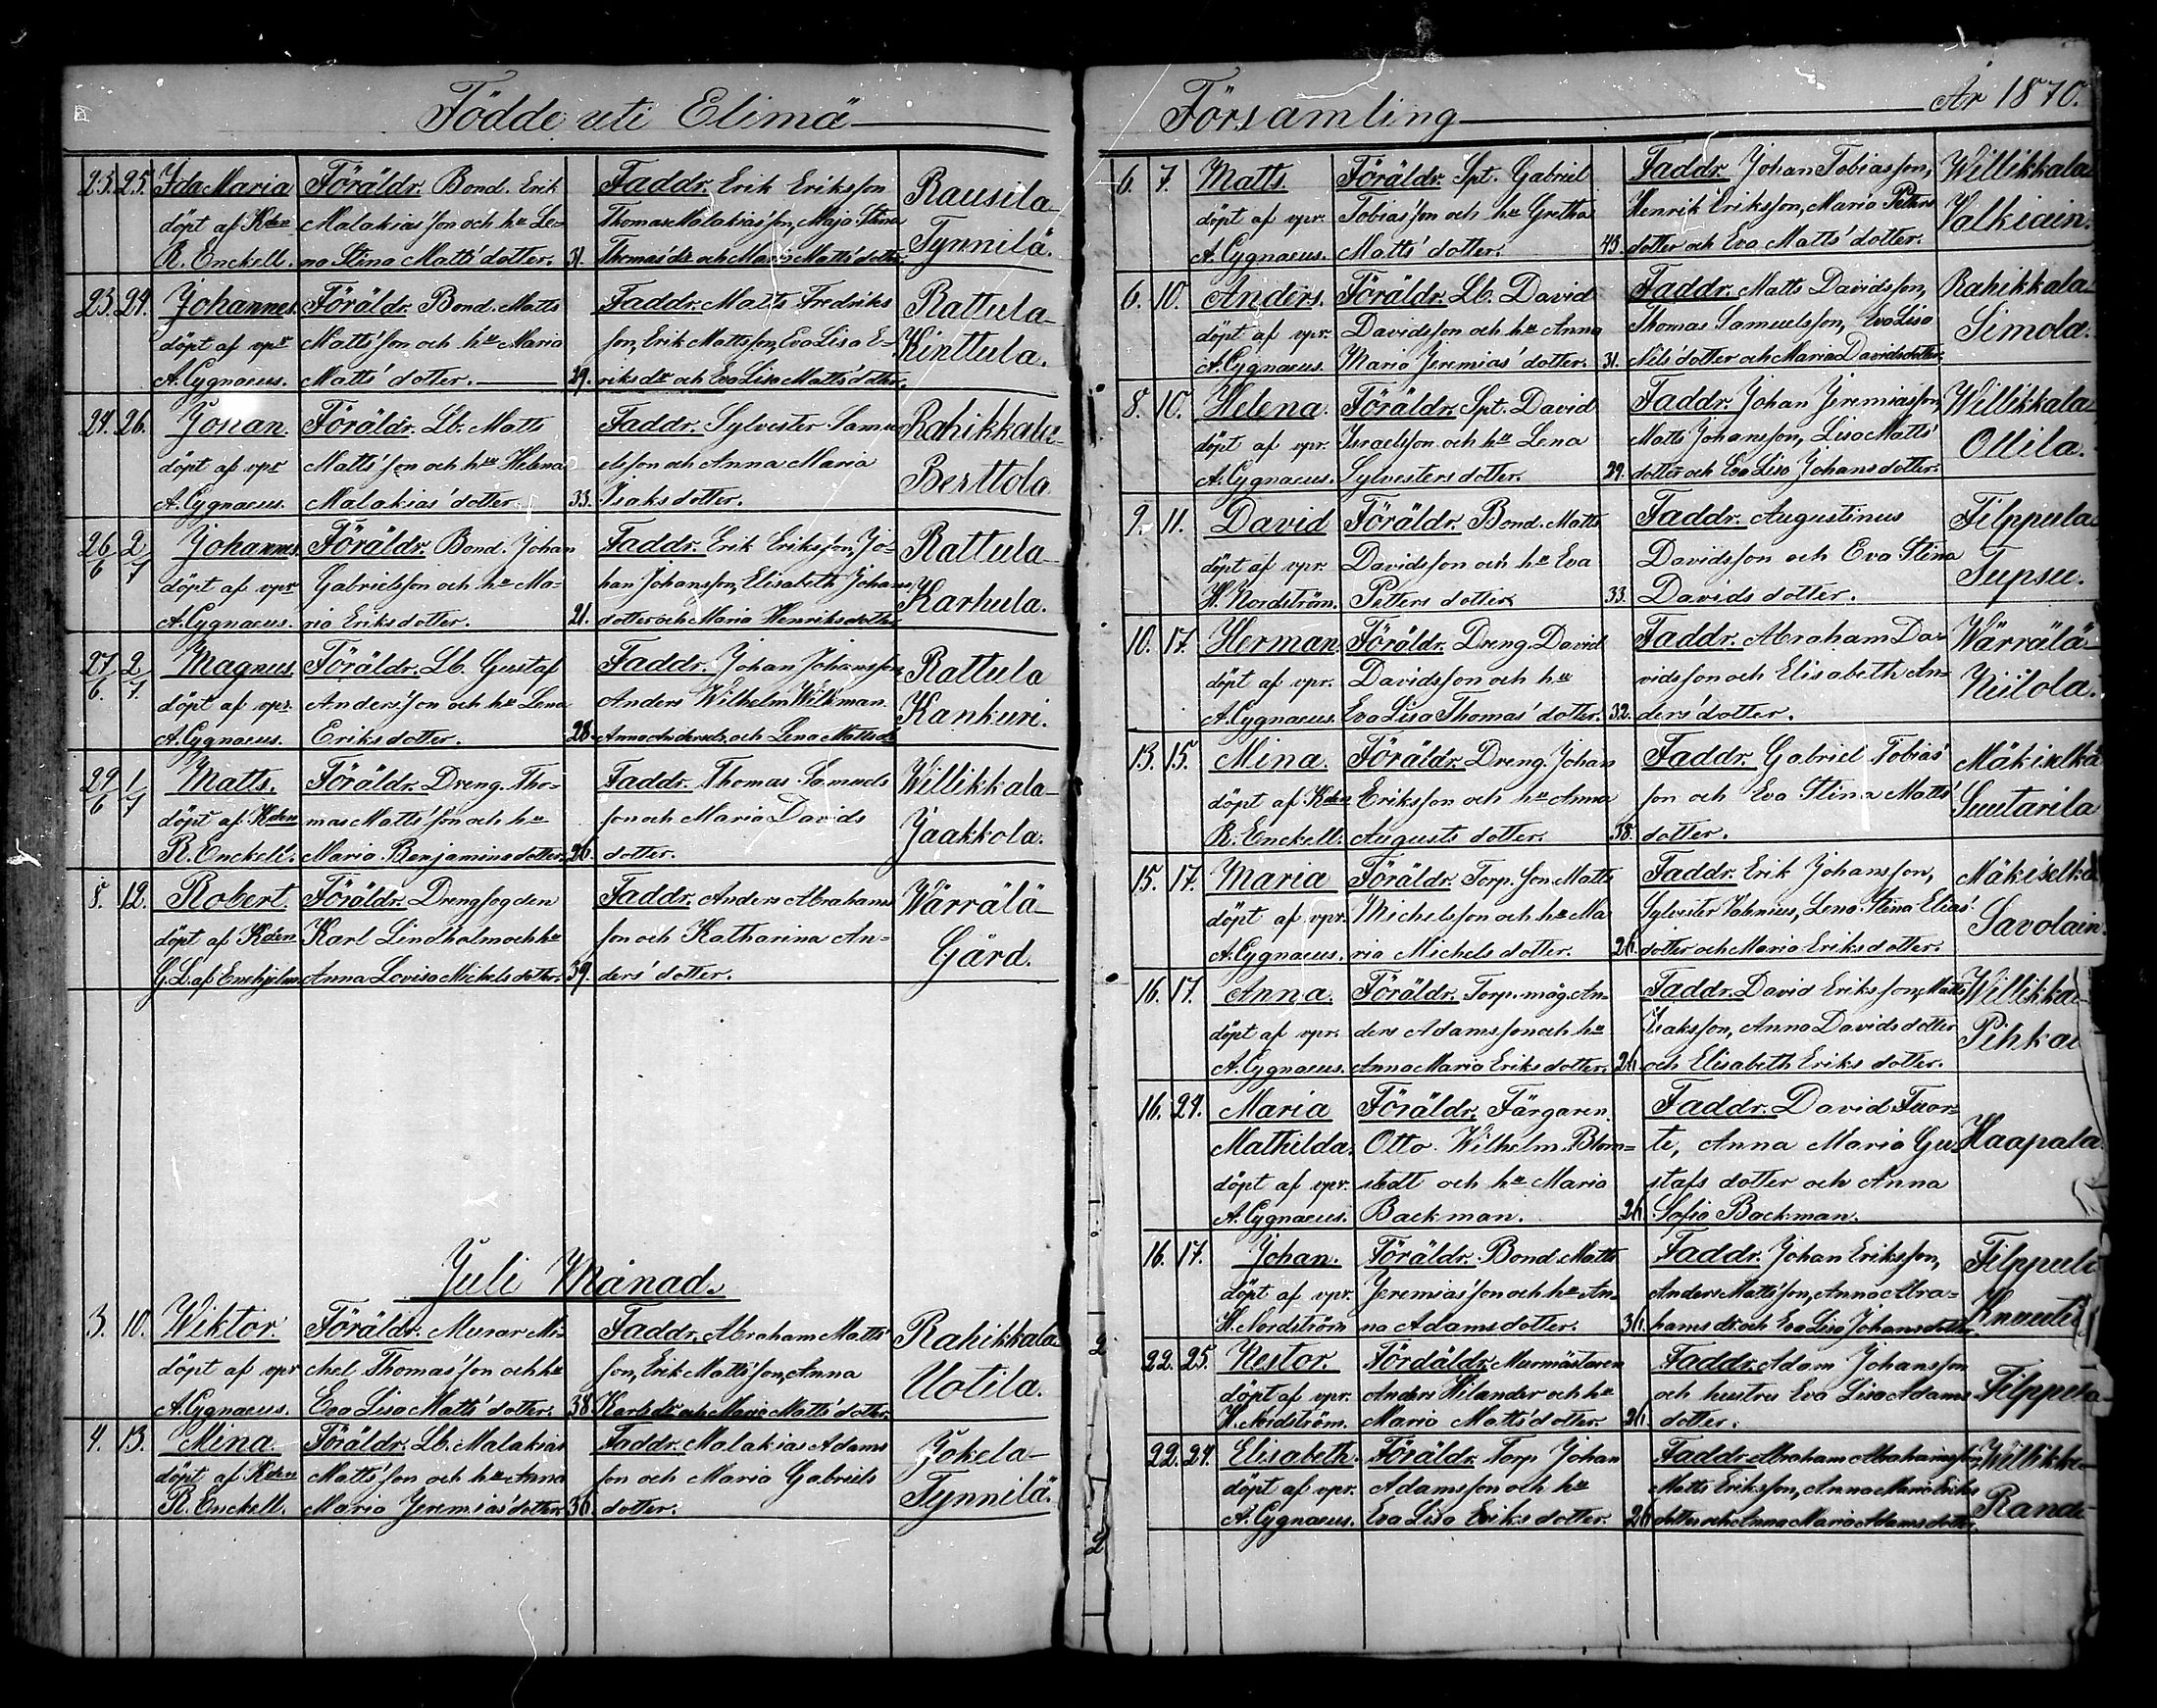 Födde uti Elimä
23. 25. Ida Maria Föräldr. Bond. Erik Faddr. Erik Eriksson Rausila
döpt af Kden Malakias'son och hu Le- Thomas Malakias'son, Maja Stina
R. Enckell. na Stina Matts'dotter. 31. Thomas'dr och Maria Matts'dotter. Tynnilä.
23. 24. Johannes. Föräldr. Bond. Matts Faddr. Matts Fredriks Rattula-
döpt af vpr Matts'son och hu Maria son, Erik Mattsson, Eva Lisa E- Kinttula.
A. Cygnaeus. Matts'dotter. 29. riksdr och Eva Lisa Matts'dotter.
24. 26. Johan. Föräldr. Lb. Matts Faddr. Sylvester Samu Rahikkala-
döpt af vpr Matts'son och hu Helena elsson och Anna Maria Berttola
A. Cygnaeus. Malakias'dotter. 33. Isaksdotter.
26/6 2/7 Johannes. Föräldr. Bond. Johan Faddr. Erik Eriksson, Jo- Rattula-
döpt af vpr Gabrielsson och hu Ma- han Johansson, Elisabeth Johans
A. Cygnaeus. ria Eriksdotter. 21. dotter och Maria Henriksdotter Karhula.
27/6 2/7 Magnus. Föräldr. Lb. Gustaf Faddr. Johan Johansson Rattula
döpt af vpr. Anders'son och hu Lena Anders Wilhelm Wilkman Kankuri.
A. Cygnaeus. Eriksdotter. 28. Anna Andersdr. och Lena Mattsdr
29/6 1/7 Matts. Föräldr. Dreng. Tho- Faddr. Thomas Samuels Willikkala-
döpt af Kden mas Matts'son och hu son och Maria Davids Jaakkola.
R. Enckell. Maria Benjaminsdotter. 26. dotter.
8. 12. Robert. Föräldr. Drengfogden Faddr. Anders Abrahams Wärrälä-
döpt af Kden Karl Lindholm och hu son och Katharina An- Gård.
G. L. af Enehjelm Anna Lovisa Michelsdotter. 39. ders'dotter.
Juli Månad.
3. 10. Wiktor. Föräldr. Murar Mi- Faddr. Abraham Matts' Rahikkala
döpt af vpr chel Thomas'son och hu son, Erik Matts'son, Anna Uotila.
A. Cygnaeus. Eva Lisa Matts'dotter. 38. Karlsdr och Maria Matts'dotter.
4. 13. Mina. Föräldr. Lb. Malakias Faddr. Malakias Adams Jokela-
döpt af Kden Matts'son och hu Anna son och Maria Gabriels Tynnilä.
R. Enckell. Maria Jeremias'dotter 36. dotter.
Församling År 1870.
6. 7. Matts. Föräldr. Spt. Gabriel Faddr. Johan Tobiasson, Willikkala
döpt af vpr. Tobias'son och hu Gretha Henrik Eriksson, Maria Peters Valkiain.
A. Cygnaeus. Matts'dotter. 43. dotter och Eva Matts'dotter.
6. 10. Anders. Föräldr. Lb. David Faddr. Matts Davidsson, Rahikkala-
döpt af vpr. Davidsson och hu Anna Thomas Samuelsson, Eva Lisa Simola.
A. Cygnaeus. Maria Jeremias'dotter. 31. Nils'dotter och Maria Davidsdotter.
8. 10. Helena. Föräldr. Spt. David Faddr. Johan Jeremiasson, Willikkala
döpt af vpr. Israelsson och hu Lena Matts Johansson, Lisa Matts' Ollila.
A. Cygnaeus. Sylvestersdotter. 29. dotter och Eva Lisa Johansdotter.
9. 11. David Föräldr. Bond. Matts Faddr. Augustinus Filppula-
döpt af vpr. Davidsson och hu Eva Davidsson och Eva Stina Tupsu.
H. Nordström. Petters dotter. 33. Davids dotter.
10. 17. Herman. Föräldr. Dreng. David Faddr. Abraham Da- Wärrälä-
döpt af vpr. Davidsson och hu vidsson och Elisabeth An- Niilola.
A. Cygnaeus. Eva Lisa Thomas'dotter. 32. ders'dotter.
13. 15. Mina. Föräldr. Dreng. Johan Faddr. Gabriel Tobias' Mäkiselkä
döpt af Kden Eriksson och hu Anna son och Eva Stina Matts' Suutarila
R. Enckell. Augusts dotter. 38. dotter.
15. 17. Maria Föräldr. Torp. son Matts Faddr. Erik Johansson, Mäkiselkä
döpt af vpr. Michelsson och hu Ma Sylvester Valenius, Lena Stina Elias' Savolain.
A. Cygnaeus. ria Michelsdotter. 26. dotter och Maria Eriksdotter.
16. 17. Anna. Föräldr. Torp. måg. An- Faddr. David Eriksson, Matts Willikka-
döpt af vpr. ders Adamsson och hu Isaksson, Anna Davidsdotter Pihka
A. Cygnaeus. Anna Maria Eriksdotter. 26. och Elisabeth Eriksdotter.
16. 24. Maria Föräldr. Färgaren Faddr. David Fuor-
Mathilda. Otto Wilhelm Blom- te, Anna Maria Gu- Haapala.
döpt af vpr. stedt och hu Maria stafs dotter och Anna
A. Cygnaeus. Backman. 26. Sofia Backman.
16. 17. Johan. Föräldr. Bond. Matts Faddr. Johan Eriksson, Filppul
döpt af vpr. Jeremias'son och hu An- Anders Matts'son, Anna Abra-
H. Nordström na Adamsdotter. 36. hamsdr. och Eva Lisa Johansdotter. Knuuti
22. 25. Nestor. Fördäldr. Murmästaren Faddr. Adam Johansson
döpt af vpr. Anders Hilander och hu och hustru Eva Lisa Adams Filppula-
H. Nordström. Maria Matts'dotter. 26. dotter.
22. 24. Elisabeth. Föräldr. Torp Johan Faddr. Abraham Abrahamsson, Willikka-
döpt af vpr. Adamsson och hu Matts Eriksson, Anna Maria Eriks
A. Cygnaeus. Eva Lisa Eriksdotter. 26 dotter och Anna Maria Adamsdotter. Rand